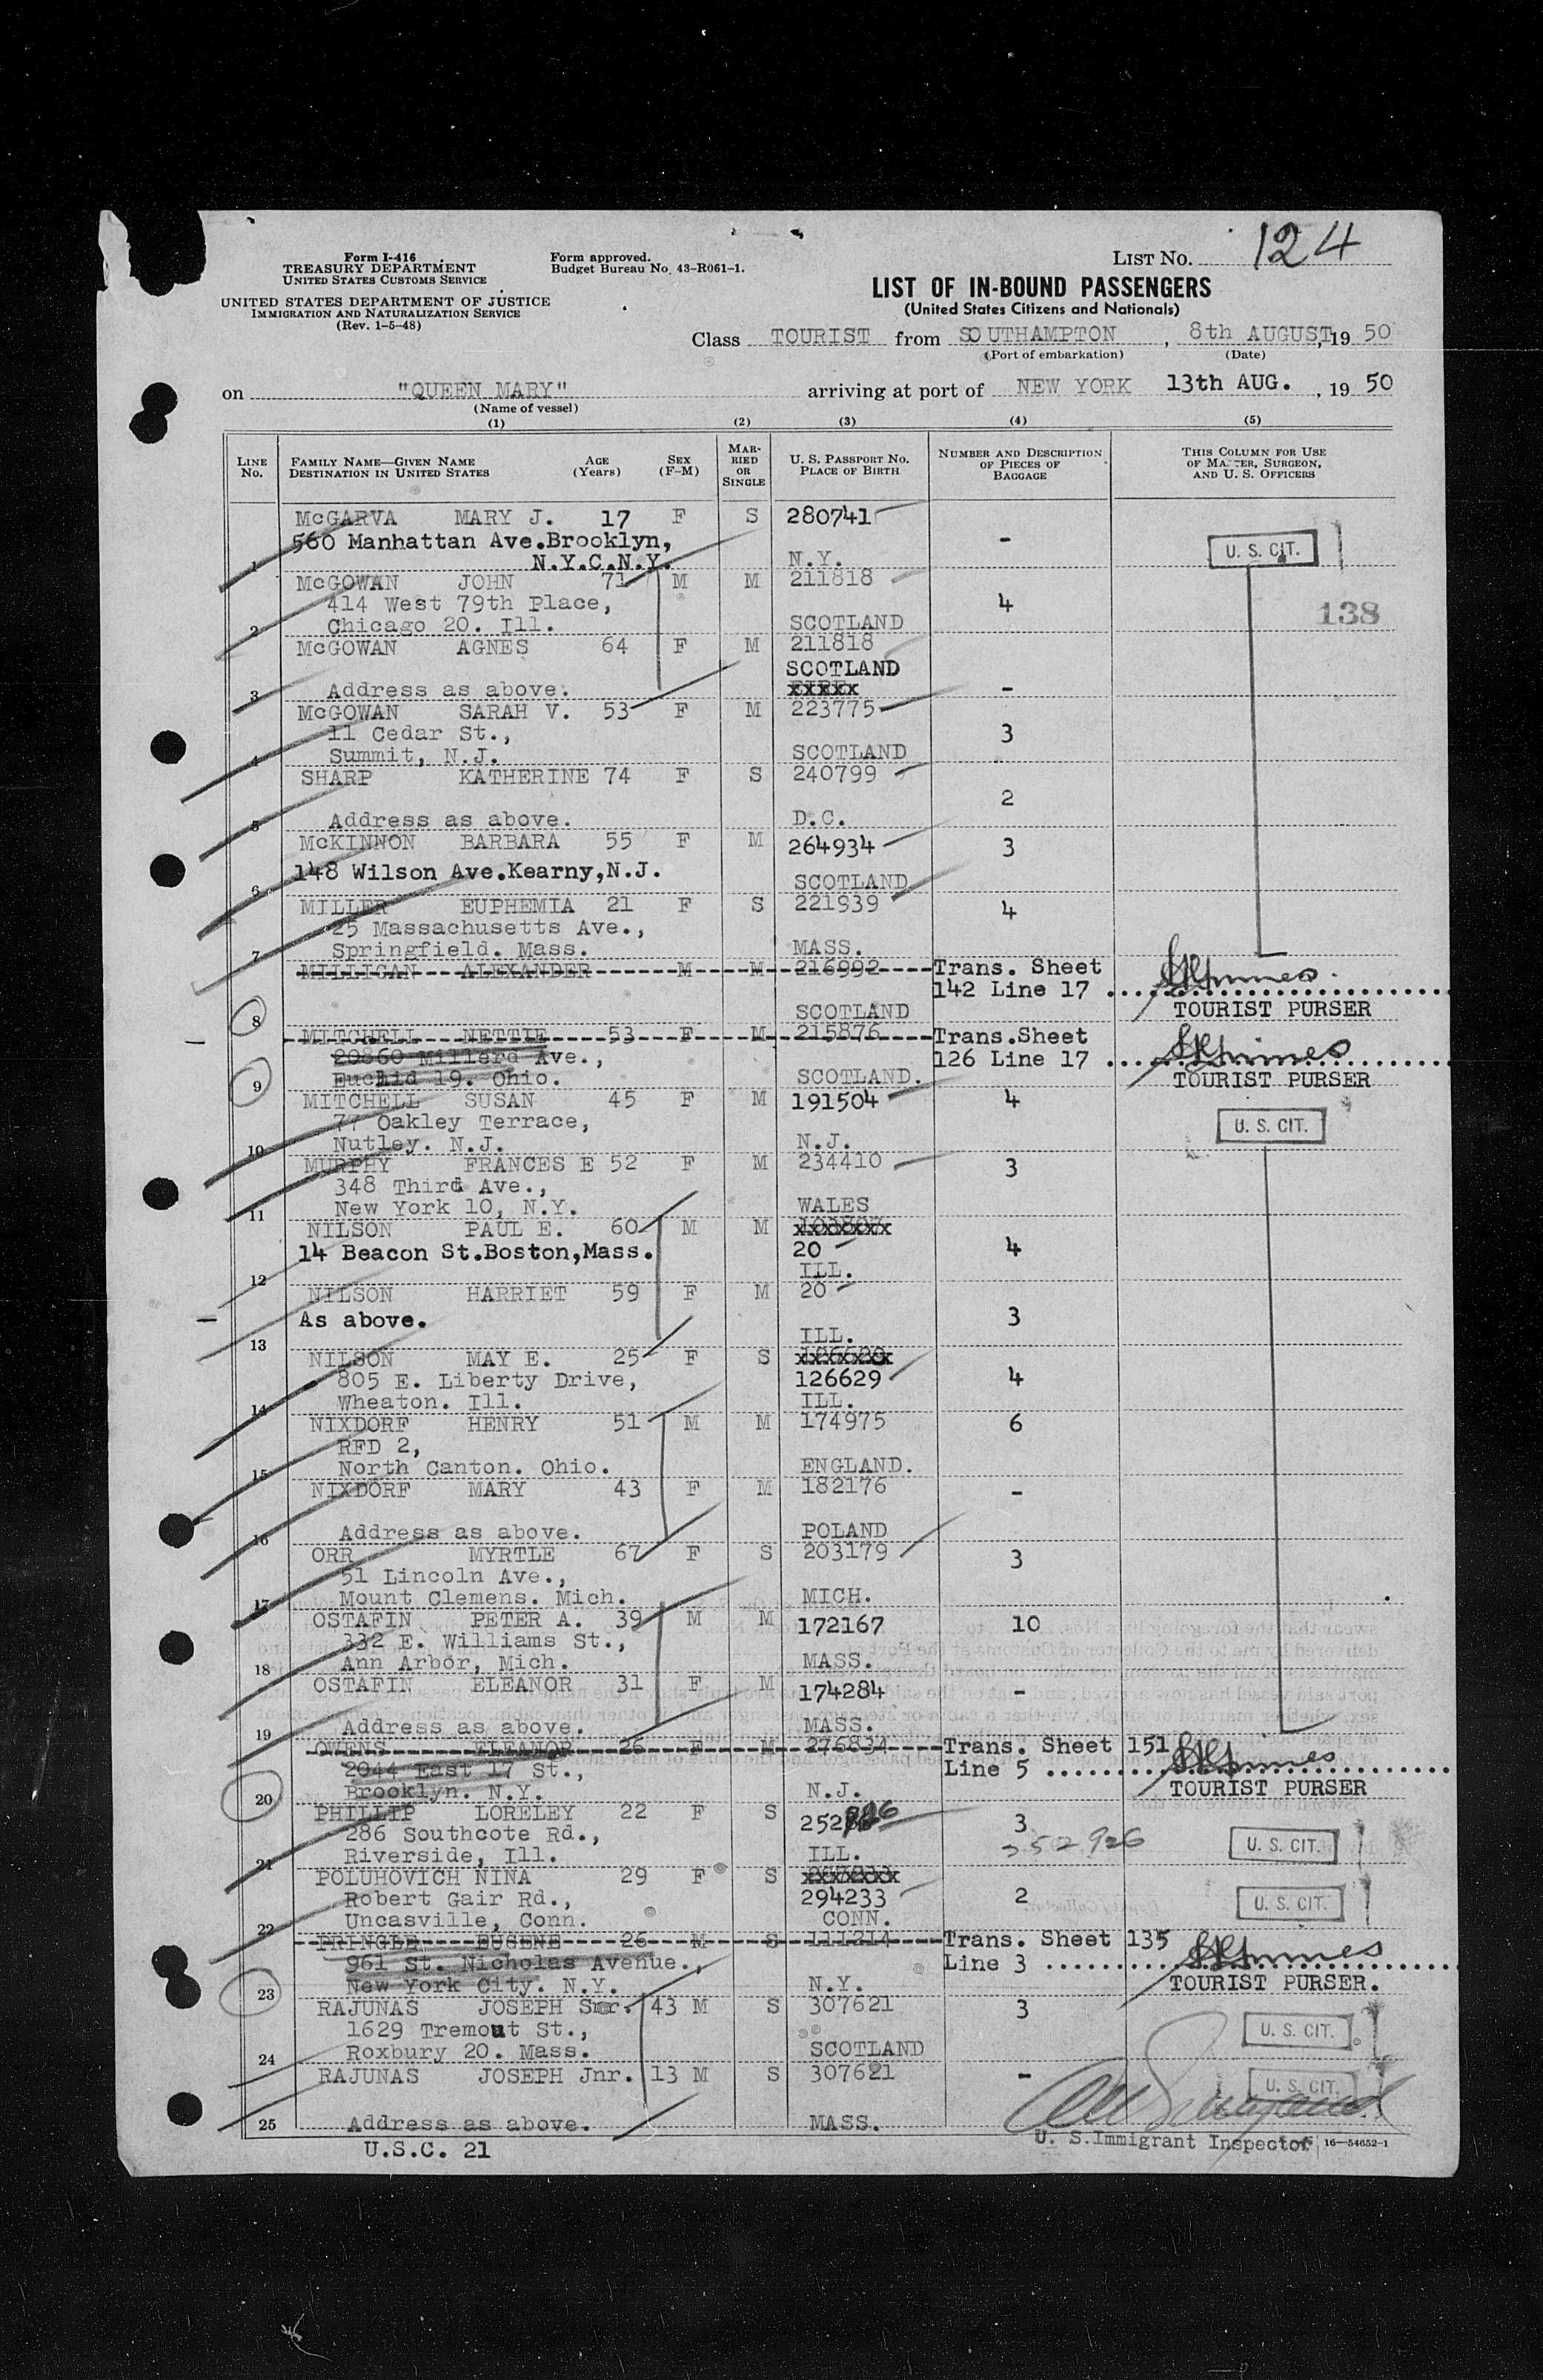 124
Form I-416
TREASURY DEPARTMENT
UNITED STATES CUSTOMS SERVICE
Form approved.
Budget Bureau No. 43-R061-1.
LIST NO.
UNITED STATES DEPARTMENT OF JUSTICE
IMMIGRATION AND NATURALIZATION SERVICE
(Rev. 1-5-48)
LIST OF IN-BOUND PASSENGERS
(United States Citizens and Nationals)
Class TOURIST from SOUTHAMPTON, 8th AUGUST, 19 50
(Port of embarkation) (Date)
on "QUEEN MARY" arriving at port of NEW YORK 13th AUG. , 19 50
(Name of vessel)
(1) (2) (3) (4) (5)
LINE No. FAMILY NAME—GIVEN NAME DESTINATION IN UNITED STATES AGE (Years) SEX (F-M) MARRIED OR SINGLE U. S. PASSPORT NO. PLACE OF BIRTH NUMBER AND DESCRIPTION OF PIECES OF BAGGAGE THIS COLUMN FOR USE OF MASTER, SURGEON, AND U. S. OFFICERS
McGARVA MARY J. 17 F S 280741
560 Manhattan Ave.Brooklyn, - U. S. CIT.
1 N.Y.C.N.Y. N.Y.
McGOWAN JOHN 71 M M 211818
414 West 79th Place, 4 138
2 Chicago 20. Ill. SCOTLAND
McGOWAN AGNES 64 F M 211818
SCOTLAND
3 Address as above. xxxxx -
McGOWAN SARAH V. 53 F M 223775
11 Cedar St., 3
4 Summit, N.J. SCOTLAND
SHARP KATHERINE 74 F S 240799
2
5 Address as above. D.C.
McKINNON BARBARA 55 F M 264934 3
148 Wilson Ave.Kearny,N.J.
6 SCOTLAND
MILLER EUPHEMIA 21 F S 221939 4
25 Massachusetts Ave.,
7 Springfield. Mass. MASS.
MILLIGAN ALEXANDER M M 216992 Trans. Sheet
142 Line 17
8 SCOTLAND TOURIST PURSER
MITCHELL NETTIE 53 F M 215876 Trans.Sheet
20860 Millerd Ave., 126 Line 17
9 Euclid 19. Ohio. SCOTLAND. TOURIST PURSER
MITCHELL SUSAN 45 F M 191504 4
77 Oakley Terrace, U. S. CIT.
10 Nutley. N.J. N.J.
MURPHY FRANCES E 52 F M 234410 3
348 Third Ave.,
11 New York 10, N.Y. WALES
NILSON PAUL E. 60 M M xxxxxxx
14 Beacon St.Boston,Mass. 20 4
12 ILL.
NILSON HARRIET 59 F M 20
As above. 3
13 ILL.
NILSON MAY E. 25 F S xxxxxxx
805 E. Liberty Drive, 126629 4
14 Wheaton. Ill. ILL.
NIXDORF HENRY 51 M M 174975 6
RFD 2,
15 North Canton. Ohio. ENGLAND.
NIXDORF MARY 43 F M 182176 -
16 Address as above. POLAND
ORR MYRTLE 67 F S 203179 3
51 Lincoln Ave.,
17 Mount Clemens. Mich. MICH.
OSTAFIN PETER A. 39 M M 172167 10
332 E. Williams St.,
18 Ann Arbor, Mich. MASS.
OSTAFIN ELEANOR 31 F M 174284 -
19 Address as above. MASS.
OWENS ELEANOR 26 F M 276834 Trans. Sheet 151
2044 East 17 St., Line 5
20 Brooklyn. N.Y. N.J. TOURIST PURSER
PHILLIP LORELEY 22 F S 252926 3
286 Southcote Rd., 252926 U. S. CIT.
21 Riverside, Ill. ILL.
POLUHOVICH NINA 29 F S xxxxxxx
Robert Gair Rd., 294233 2 U. S. CIT.
22 Uncasville, Conn. CONN.
PRINGLE EUGENE 26 M S 111214 Trans. Sheet 135
961 St. Nicholas Avenue., Line 3
23 New York City. N.Y. N.Y. TOURIST PURSER.
RAJUNAS JOSEPH Snr. 43 M S 307621 3
1629 Tremout St., U. S. CIT.
24 Roxbury 20. Mass. SCOTLAND
RAJUNAS JOSEPH Jnr. 13 M S 307621 -
U. S. CIT.
25 Address as above. MASS.
U.S.C. 21 U. S. Immigrant Inspector 16—54652-1